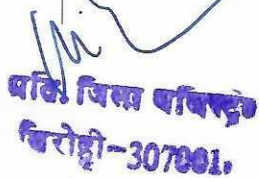 अति. जिला मजिस्ट्रेट
सिरोही-307001,